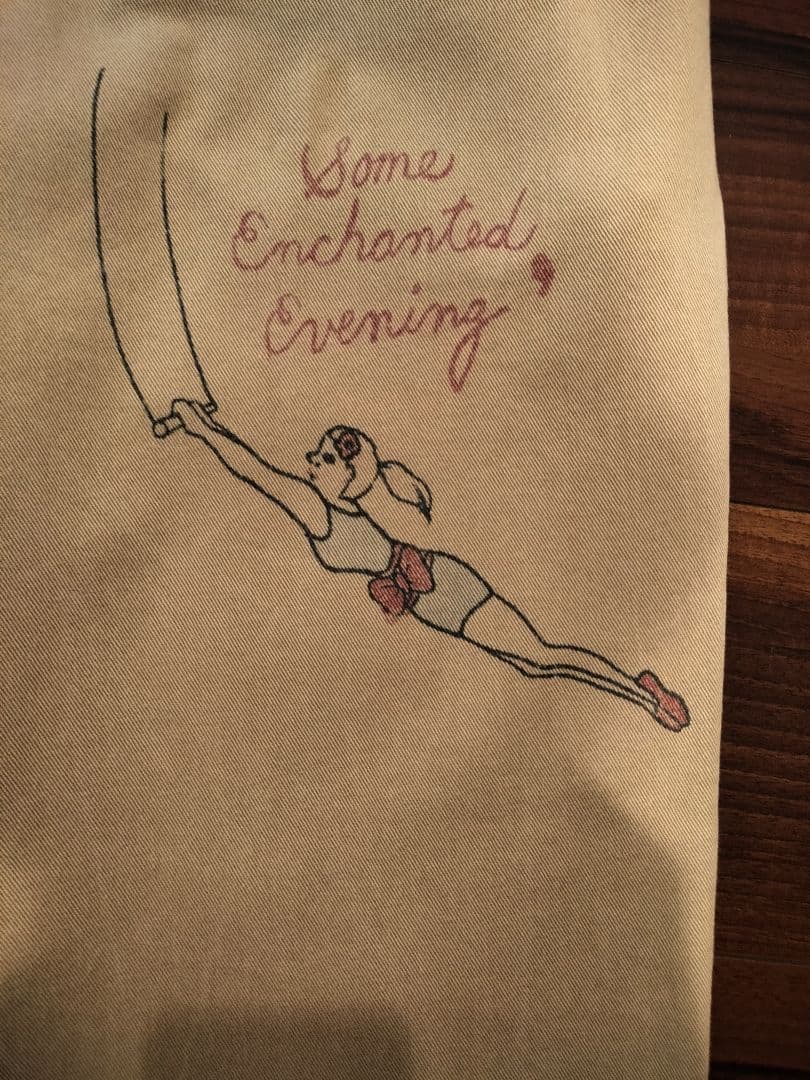 Some
Enchanted
Evening